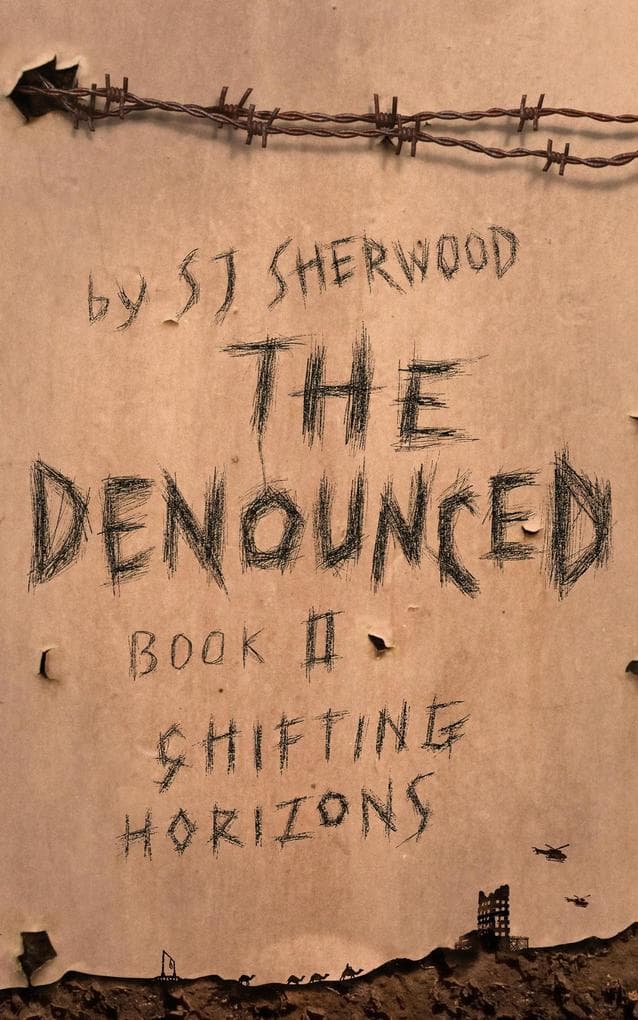 by SJ SHERWOOD
THE
DENOUNCED
BOOK II
SHIFTING
HORIZONS